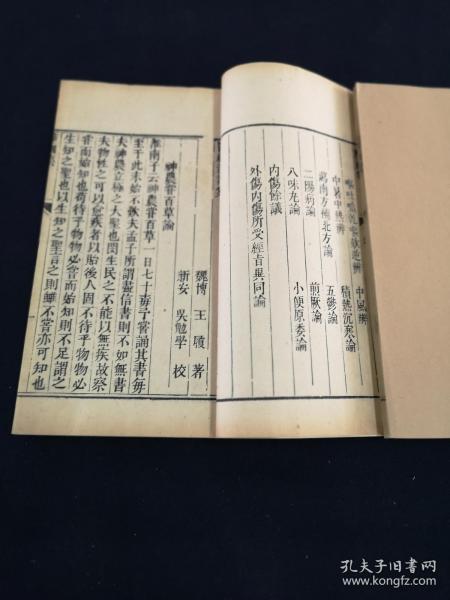 嘔吐乾嘔噦欬逆辨　中風辨
中暑中熱辨　積熱沉寒論
瀉南方補北方論　五鬱論
二陽病論　煎厥論
八味丸論　小便原委論
內傷餘議
外傷內傷所受經旨異同論
魏博　王　履　著
新安　吳勉學　校
神農嘗百草論
淮南子云神農嘗百草一日七十毒予嘗誦其書每
至于此未始不歎夫孟子所謂盡信書則不如無書
夫神農立極之大聖也閔生民之不能以無疾故察
夫物性之可以愈疾者以貽後人固不待乎物物必
嘗而始知也苟待乎物物必嘗而始知則不足謂之
生知之聖也以生知之聖言之則雖不嘗亦可知也
孔夫子旧书网
www.kongfz.com